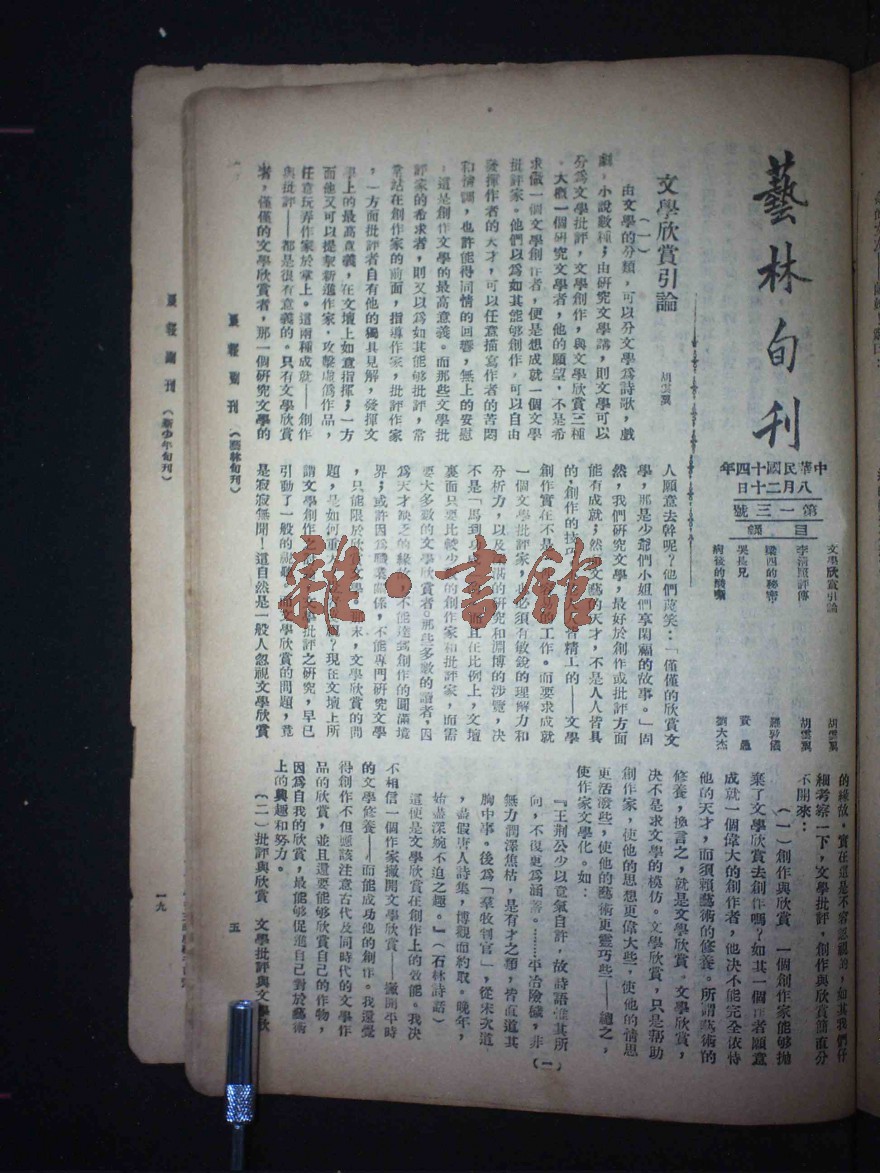 藝林旬刊
中華民國十四年
八月二十日
第一三號
目錄
文學欣賞引論 胡雲翼
李清照評傳 胡雲翼
吳長兄
病後的 劉大杰
文學欣賞引論
胡雲翼
(一)
由文學的分類,可以分文學為詩歌,戲
劇,小說數種;由研究文學講,則文學可以
分為文學批評,文學創作,與文學欣賞三種
。大概一個研究文學者,他的願望,不是希
求做一個文學創作者,便是想成就一個文學
批評家。他們以為如其能够創作,可以自由
發揮作者的天才,可以任意描寫作者的苦悶
和情調,也許能得同情的回響,無上的安慰
,這是創作文學的最高意義。而那些文學批
評家的希求者,則又以為如其能够批評,常
常站在創作家的前面,指導作家,批評作家
,一方面批評者自有他的獨具見解,發揮文
學上的最高意義,在文壇上如意指揮;一方
而他又可以提掣新進作家,攻擊虛僞作品,
任意玩弄作家於掌上。這兩種成就——創作
與批評——都是很有意義的。只有文學欣賞
者,僅僅的文學欣賞者,那一個研究文學的
人願意去幹呢?他們蔑笑:「僅僅的欣賞文
學,那是少爺們小姐們享閑福的故事。」固
然,我們研究文學,最好於創作或批評方面
能有成就;然而文藝的天才,不是人人皆具
的,創作的技巧 皆精工的——文學
創作實在不是 易的工作。而要求成就
一個文學批評家,也必須有敏銳的理解力和
分析力,以及 的研究和淵博的涉覽,决
不是「馬到 而且在比例上,文壇
裏面只要比較少數的創作家和批評家,而需
要大多數的文學欣賞者。那些多數的讀者,因
為天才缺乏的緣故,不能達到創作的圓滿境
界;或許因為職業關係,不能專門研究文學
,只能限於欣賞文學 末,文學欣賞的問
題,是如何重 現在文壇上所
謂文學創作之 文學批評之研究,早已
引動了一般的視 而文學欣賞的問題,竟
是寂寂無聞!這自然是一般人忽視文學欣賞
的緣故,實在這是不容忽視的,如其我們仔
細考察一下,文學批評,創作與欣賞簡直分
不開來:
(一)創作與欣賞 一個創作家能够拋
棄了文學欣賞去創作嗎?如其一個作者願意
成就一個偉大的創作者,他决不能完全依恃
他的天才,而須賴藝術的修養。所謂藝術的
修養,換言之,就是文學欣賞。文學欣賞,
决不是求文學的模仿。文學欣賞,只是幫助
創作家,使他的思想更偉大些,使他的情思
更活潑些,使他的藝術更靈巧些——總之,
使作家文學化。如:
『王荊公少以意氣自許,故詩語惟其所
向,不復更為涵蓄。……平冶險穢,非(一)
無力潤澤焦枯,是有才之類,皆直道其
胸中事。後為「羣牧判官」,從宋次道
,盡假唐人詩集,博觀而約取。晚年,
始盡深婉不迫之趣。』(石林詩話)
這便是文學欣賞在創作上的效能。我决
不相信一個作家撇開文學欣賞——撇開平時
的文學修養——而能成功他的創作。我還覺
得創作不但應該注意古代及同時代的文學作
品的欣賞,並且還要能够欣賞自己的作物,
因為自我的欣賞,最能够促進自己對於藝術
上的興趣和努力。
(二)批評與欣賞 文學批評與文學欣
晨報副刊 (藝林旬刊) 五
晨報副刊 (新少年旬刊) 一九
雜·書館